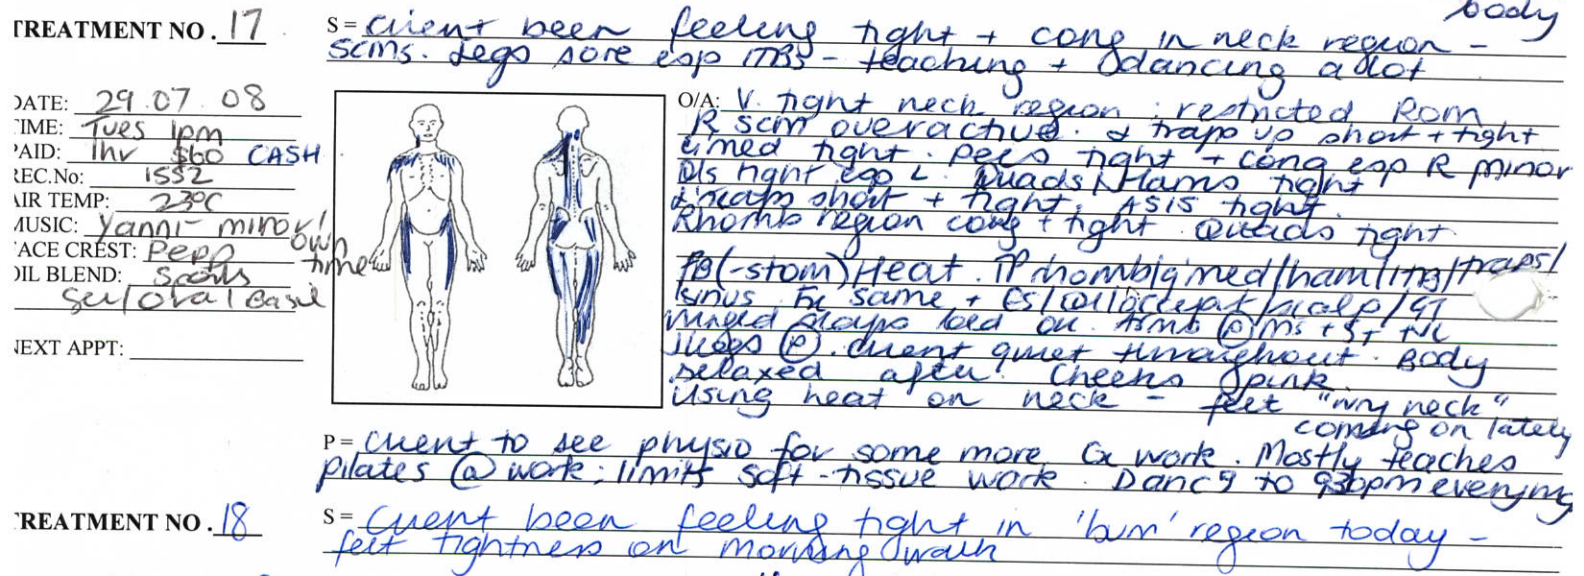 body
TREATMENT NO. 17
S = Client been feeling tight + cong in neck region -
SCMs. Legs sore esp ITBs - teaching + dancing a lot
DATE: 29.07.08
TIME: Tues 1pm
PAID: 1hr $60 CASH
REC.No: 1552
AIR TEMP: 23°C
MUSIC: Yanni - mirror/ own time
FACE CREST: Pepp
OIL BLEND:
Basil
NEXT APPT:
O/A: V. tight neck region : restricted ROM
R SCM overactive. & traps up short + tight
tight. Pecs tight + cong esp R minor
tight esp L. Quads / Hams tight
short + tight. ASIS tight.
Rhomb region cong + tight. Quads tight
FB (-stom) Heat. TP rhomb/gmed/ham/ITB/traps/
sinus. same + scalp/
Legs Ⓟ. Client quiet throughout. Body
relaxed after. Cheeks pink.
Using heat on neck - felt "wry neck"
coming on lately
P = Client to see physio for some more Cx work. Mostly teaches
pilates @ work; limits soft-tissue work. Danc 9 to 930pm evening
TREATMENT NO. 18
S = Client been feeling tight in 'bum' region today -
felt tightness on morning walk